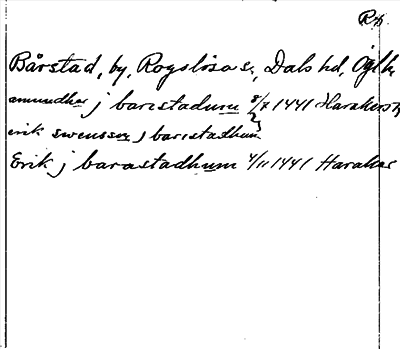 Rz
Bårstad, by, Rogslösa s:, Dals hd, Ögl
amundhar j barestadum 8/7 1441 Harakers
erik swensson j barestadhum
Erik j barastadhum 4/11 1441 Haraker